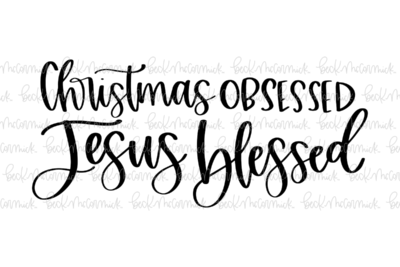 Christmas OBSESSED
Jesus blessed